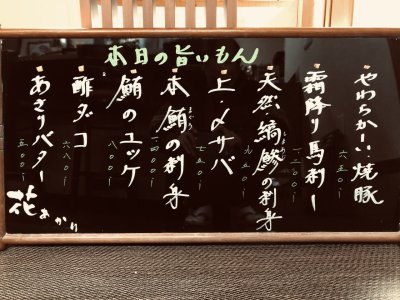 本日の旨いもん
やわらかい焼豚
六五〇
霜降り馬刺し
天然縞鯵の刺身
九五〇
上・〆サバ
七五〇
本鮪の刺身
鮪のユッケ
八〇〇
酢ダコ
六八〇
あさりバター
五〇〇
花あかり